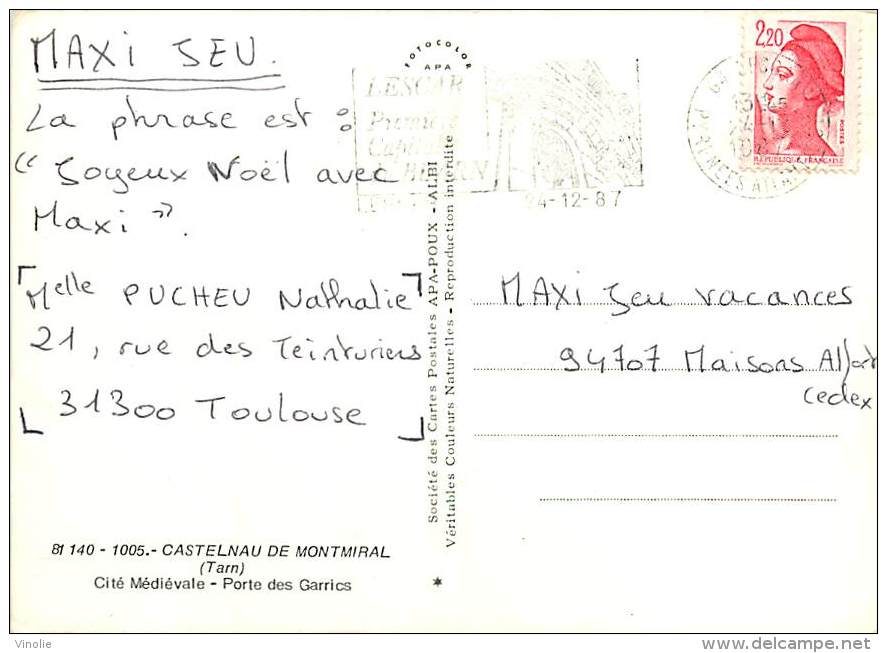 MAXI JEU.
La phrase est :
" Joyeux Noël avec
Maxi ".
Melle PUCHEU Nathalie
21, rue des Teinturiers
31300 Toulouse
81 140 - 1005.- CASTELNAU DE MONTMIRAL
(Tarn)
Cité Médiévale - Porte des Garrics
FOTOCOLOR
APA
Société des Cartes Postales APA-POUX - ALBI
Véritables Couleurs Naturelles - Reproduction interdite
LESCAR
Première
24-12-87
PYRENEES
2,20
POSTES
REPUBLIQUE FRANÇAISE
MAXI Jeu vacances
94707 Maisons Alfort
Cedex
Vinolie
www.delcampe.net